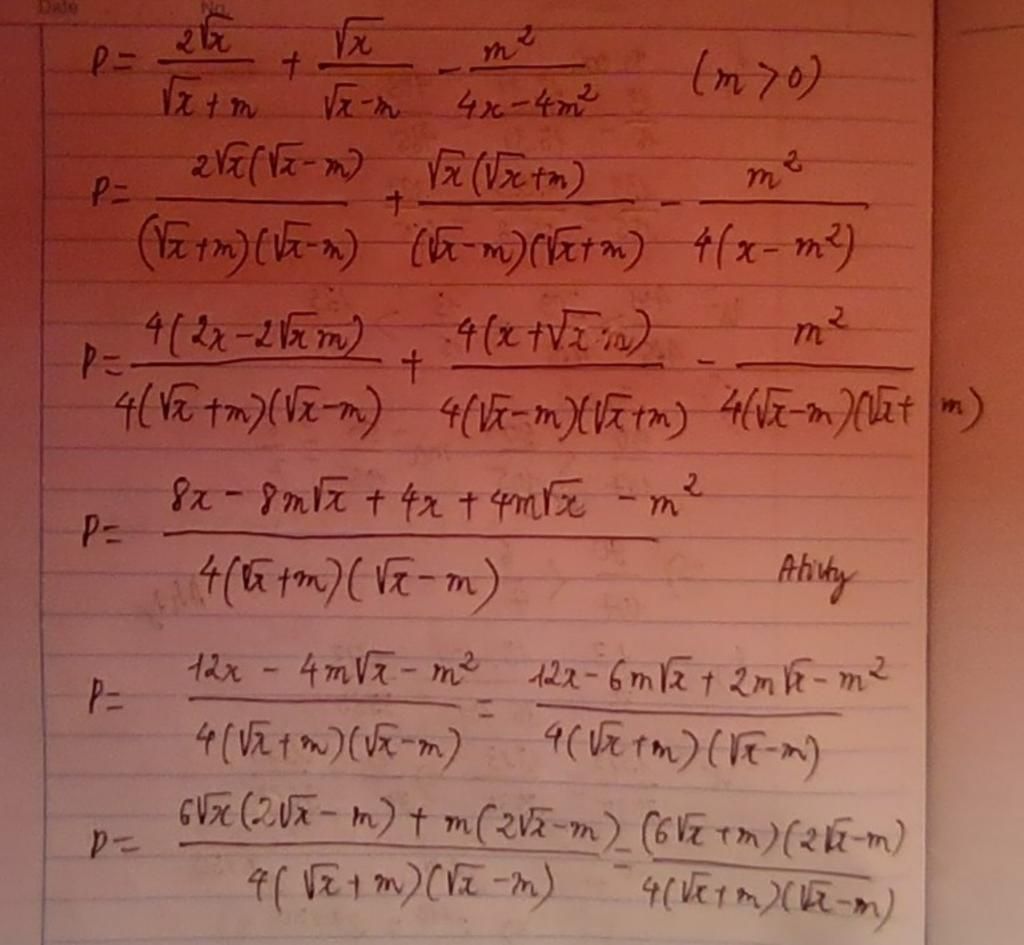 Date No.
P = 2√x / (√x + m) + √x / (√x - m) - m² / (4x - 4m²) (m > 0)
P = 2√x(√x - m) / (√x + m)(√x - m) + √x(√x + m) / (√x - m)(√x + m) - m² / 4(x - m²)
P = 4(2x - 2√x m) / 4(√x + m)(√x - m) + 4(x + √x m) / 4(√x - m)(√x + m) - m² / 4(√x - m)(√x + m)
P = (8x - 8m√x + 4x + 4m√x - m²) / 4(√x + m)(√x - m)
P = (12x - 4m√x - m²) / 4(√x + m)(√x - m) = (12x - 6m√x + 2m√x - m²) / 4(√x + m)(√x - m)
P = (6√x(2√x - m) + m(2√x - m)) / 4(√x + m)(√x - m) = (6√x + m)(2√x - m) / 4(√x + m)(√x - m)